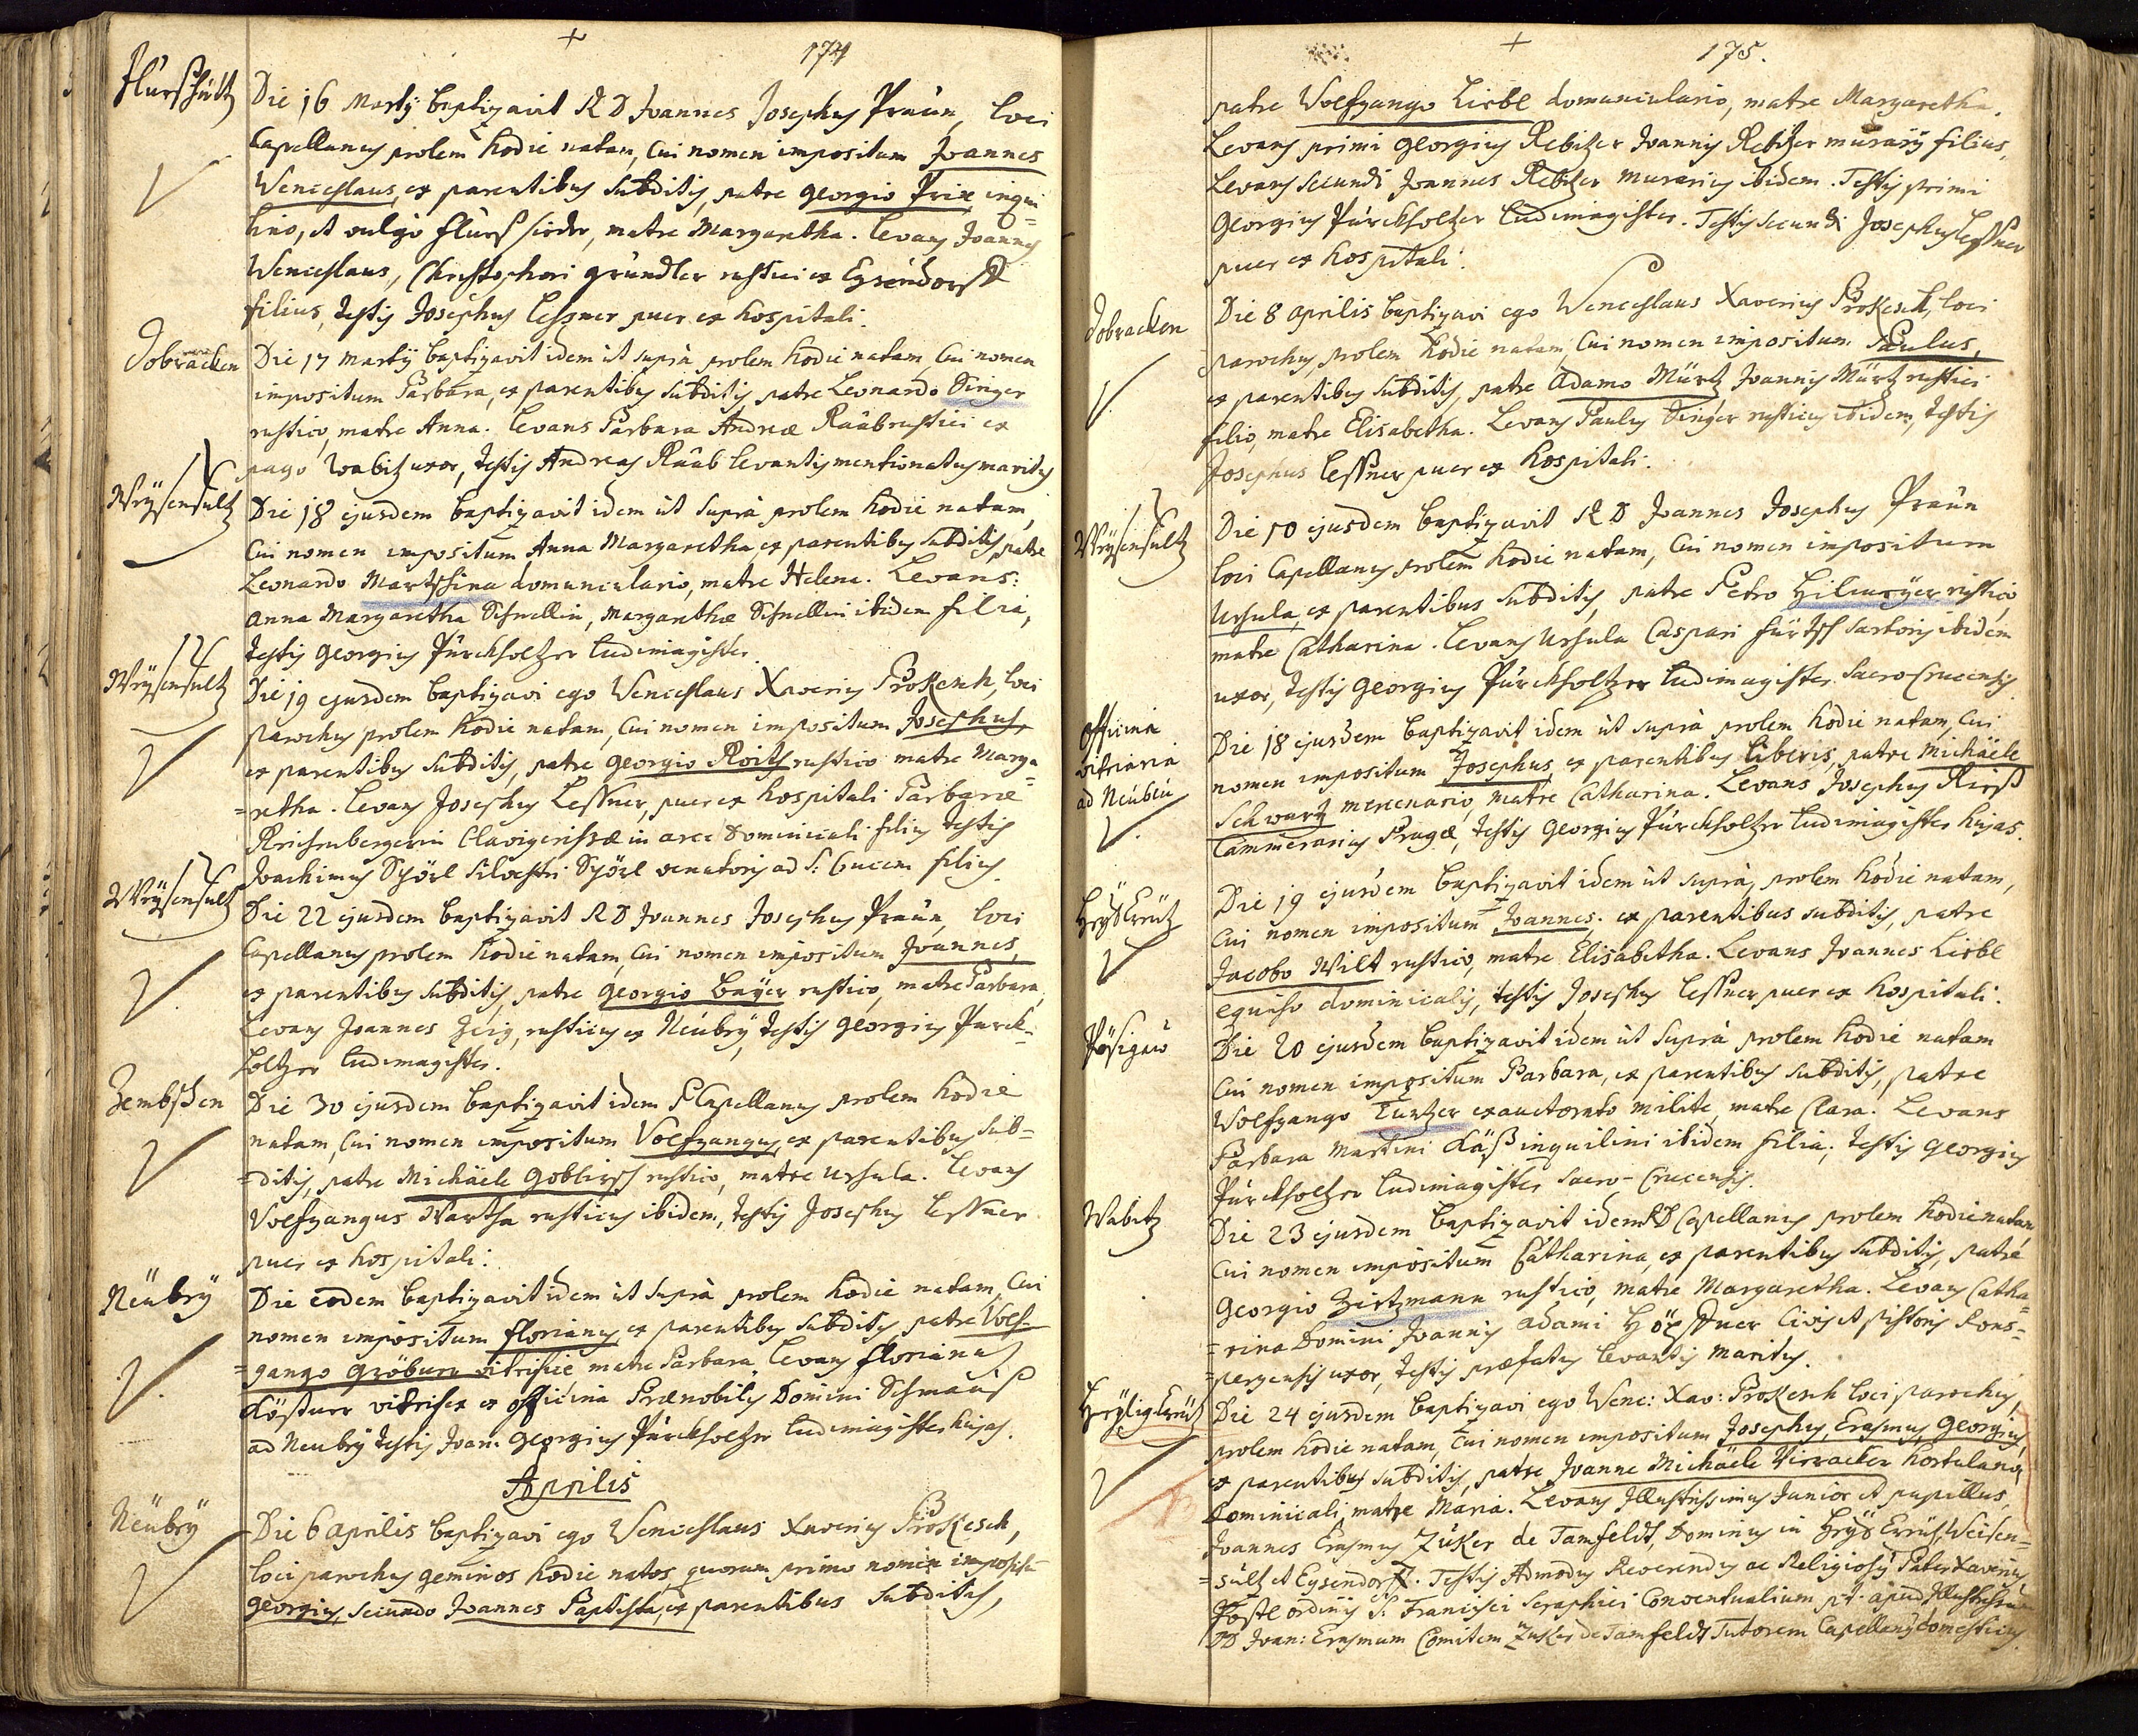 174
Flurschütz
Die 16 Martÿ baptizavit R D Joannes Josephus Praün, loci
Capellanus prolem hodie natam, Cui nomen impositum Joannes
Wenceslaus, ex parentibus subditis, patre Georgio Prix inqui=
lino, et vulgo Flurssieder, matre Margaretha. Levans Joannes
Wenceslaus, Christophori Gründler rustici ex Eysendorff
filius, testis Josephus Lessner puer ex hospitali.
Dobracken
Die 17 Martÿ baptizavit idem ut supra prolem hodie natam, Cui nomen
impositum Barbara, ex parentibus subditis, patre Leonardo Singer
rustico, matre Anna. Levans Barbara Andreæ Räab rustici ex
pago Wabitz uxor, testis Andreas Räab levantis mentionatus maritus
Weysensultz
Die 18 ejusdem baptizavit idem ut supra prolem hodie natam,
Cui nomen impositum Anna Margaretha ex parentibus subditis, patre
Leonardo Martschina domunculario, matre Helena. Levans:
Anna Margaretha Schnellin, Margarethæ Schnellin ibidem filia,
testis Georgius Pürckholtzer ludimagister.
Weysensultz
Die 19 ejusdem baptizavi ego Wenceslaus Xaverius Prokesch, loci
parochus prolem hodie natam, Cui nomen impositum Josephus,
ex parentibus subditis, patre Georgio Roith rustico matre Marga=
=retha. Levans Josephus Lessner, puer ex hospitali Barbaræ
Reichenbergerin Clavigerissæ in arce Dominicali filius testis
Joachimus Spörl Silvestri Spörl venatoris ad S: Crucem filius.
Weysensultz
Die 22 ejusdem baptizavit R D Joannes Josephus Praün, loci
Capellanus prolem hodie natam, Cui nomen impositum Joannes,
ex parentibus subditis, patre Georgio Bayer rustico, matre Barbara,
Levans Joannes Zeig, rusticus ex Neübeÿ, testis Georgius Pürck=
holtzer ludimagister.
Zembschen
Die 30 ejusdem baptizavit idem Capellanus prolem hodie
natam, Cui nomen impositum Volfgangus, ex parentibus sub=
=ditis, patre Michäele Goblirsch rustico, matre Ursula. Levans
Volfgangus Wartha rusticus ibidem, testis Josephus Lessner
puer ex hospitali.
Neübeÿ
Die eodem baptizavit idem ut supra prolem hodie natam, Cui
nomen impositum Florianus, ex parentibus subditis, patre Volf=
=gango Gröbner vitrifice matre Barbara, Levans Florianus
Löstner vitrifex ex officina Prænobilis Domini Schmaus
ad Neubeÿ testis Joan: Georgius Pürckholtzer ludimagister hujas.
Aprilis
Neübeÿ
Die 6 Aprilis baptizavi ego Wenceslaus Xaverius Prokesch,
loci parochus geminos hodie natos, quorum primo nomen impositu
Georgius, secundo Joannes Baptista, ex parentibus subditis,
175.
patre Wolfgango Liebl domunculario, matre Margaretha.
Levans primi Georgius Rebitzer Joannis Rebitzer murarÿ filius,
Levans secundi Joannes Rebitzer murarius ibidem. Testis primi
Georgius Pürckholtzer ludimagister. Testis secundi Josephus Lessner
puer ex hospitali.
Dobracken
Die 8 Aprilis baptizavi ego Wenceslaus Xaverius Prokesch, loci
parochus, prolem hodie natam, Cui nomen impositum Paulus,
ex parentibus subditis, patre Adamo Märtz Joannis Märtz rustici
filio, matre Elisabetha. Levans Paulus Singer rusticus ibidem, testis
Josephus Lessner puer ex hospitali.
Weysensultz
Die 10 ejusdem baptizavit R D Joannes Josephus Praün
loci Capellanus prolem hodie natam, Cui nomen impositum
Ursula, ex parentibus subditis, patre Petro Hilmeyer rustico,
matre Catharina. Levans Ursula Caspari Fürtsch sartoris ibidem
uxor, testis Georgius Pürckholtzer ludimagister Sacro Crucensis
Officina
vitriaria
ad Neübeü
Die 18 ejusdem baptizavit idem ut supra prolem hodie natam, Cui
nomen impositum Josephus, ex parentibus liberis, patre Michäele
Schwartz mercenario, matre Catharina. Levans Josephus Kirss
Cammerarius Pragæ, testis Georgius Pürckholtzer ludimagister hujas.
Heÿl Creütz
Die 19 ejusdem baptizavit idem ut supra, prolem hodie natam,
Cui nomen impositum Joannes, ex parentibus subditis, patre
Jacobo Wilt rustico, matre Elisabetha. Levans Joannes Liebl
equiso dominicalis, testis Josephus Lessner puer ex hospitali.
Pösigaü
Die 20 ejusdem baptizavit idem ut supra prolem hodie natam
Cui nomen impositum Barbara, ex parentibus subditis, patre
Wolfgango Turtzer exauctorato milite matre Clara. Levans
Barbara Martini Käß inquilini ibidem filia; testis Georgius
Pürckholtzer ludimagister Sacro-Crucensis.
Wabitz
Die 23 ejusdem baptizavit idem RD Capellanus prolem hodie natam
Cui nomen impositum Catharina, ex parentibus subditis, patre
Georgio Zirtzmann rustico, matre Margaretha. Levans Catha=
=rina Domini Joannis Adami civis et pistoris Rons=
=pergensis uxor, testis præfatus levantis maritus.
Heÿlig Creütz
Die 24 ejusdem baptizavi ego Wenc: Xav: Prokesch loci parochus,
prolem hodie natam, Cui nomen impositum Josephus, Erasmus, Georgius,
ex parentibus subditis, patre Joanne Michäele Virracker hortulano
Dominicali, matre Maria. Levans Illustrissimus Junior et pupillus,
Joannes Erasmus Zuker de Tamfeldt, Dominus in Heÿl Creütz, Weisen=
=sultz et Eysendorff. Testis Admodum Reverendus ac Religiosus Pater Xaverius
Postl ordinis S: Francisci Seraphici Conventualium p.t. apud Illustrissimum
DD Joan: Erasmum Comitem Zuker de Tamfeldt Tutorem Capellanus domesticus.